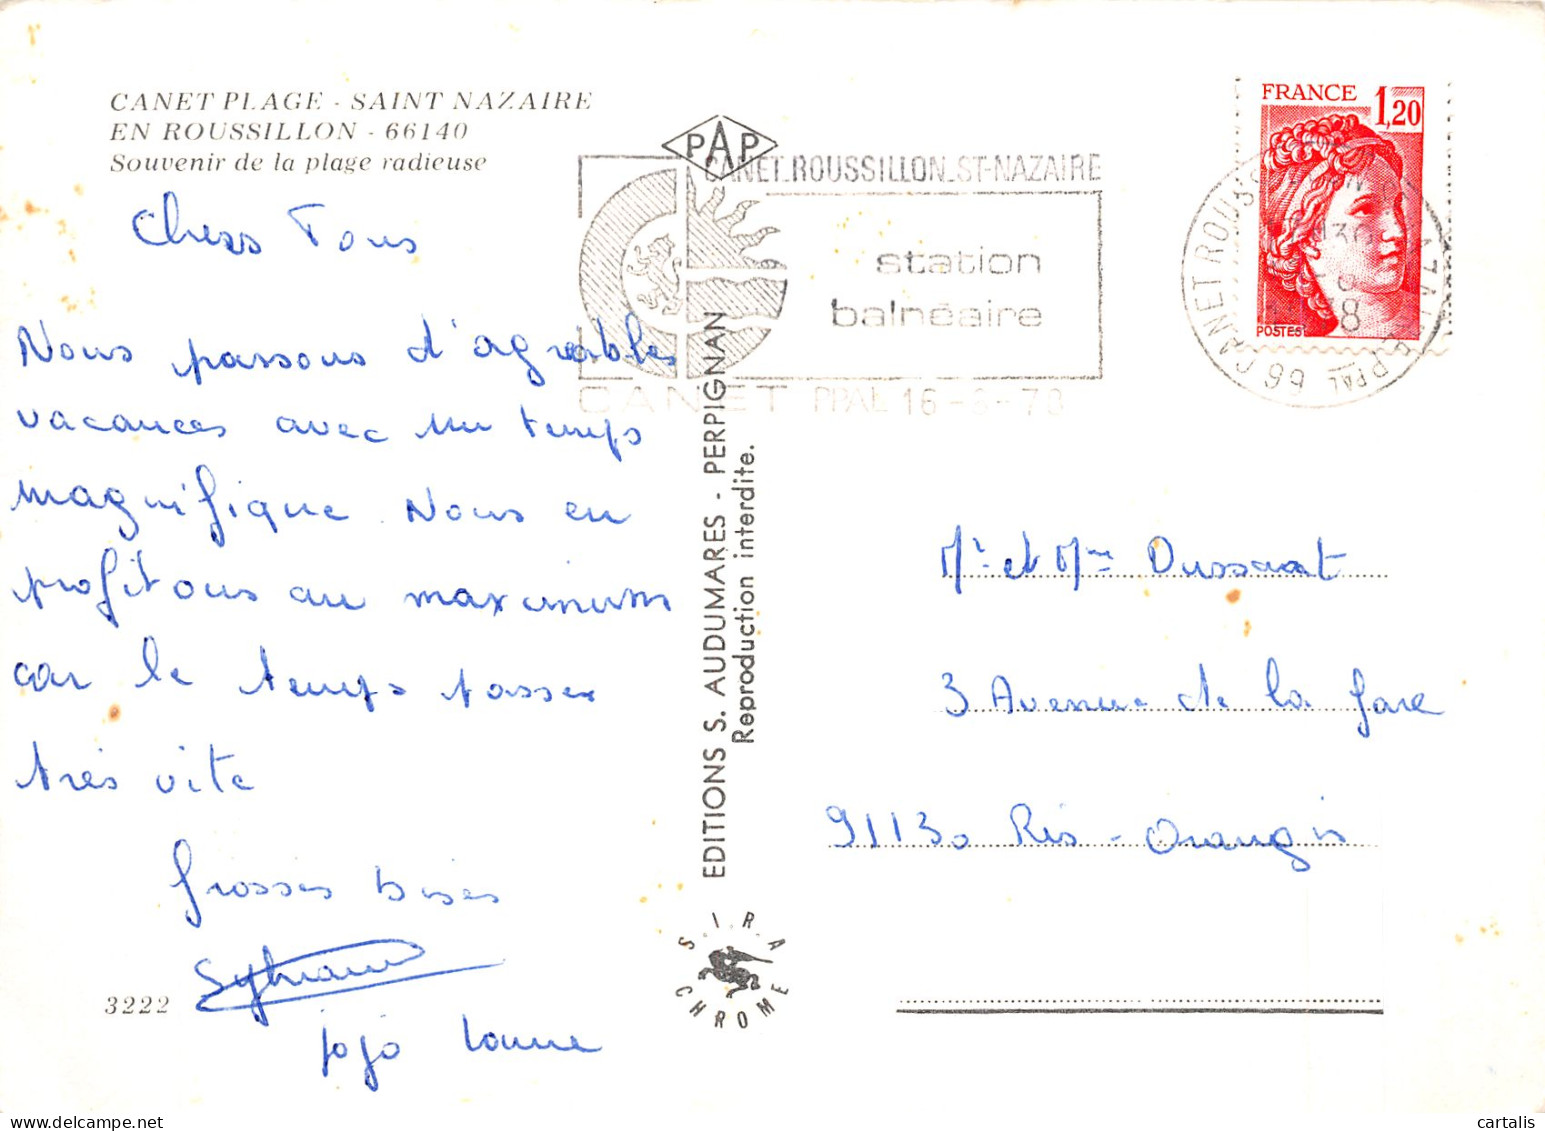 CANET PLAGE - SAINT NAZAIRE
EN ROUSSILLON - 66140
Souvenir de la plage radieuse
Chers Tous
Nous passons d'agréables
vacances avec un temps
magnifique. Nous en
profitons au maximum
car le temps passe
très vite
Grosses bises
Sylviane
jojo
3222
PAP
CANET-ROUSSILLON-ST-NAZAIRE
station
balnéaire
CANET PPAL 16-8-78
EDITIONS S. AUDUMARES - PERPIGNAN
Reproduction interdite.
S.I.R.A
CHROME
FRANCE 1,20
POSTES
66 CANET ROUSS
Mr et Mme Dussart
3 Avenue de la Gare
91130 Ris-Orangis
cartalis
www.delcampe.net